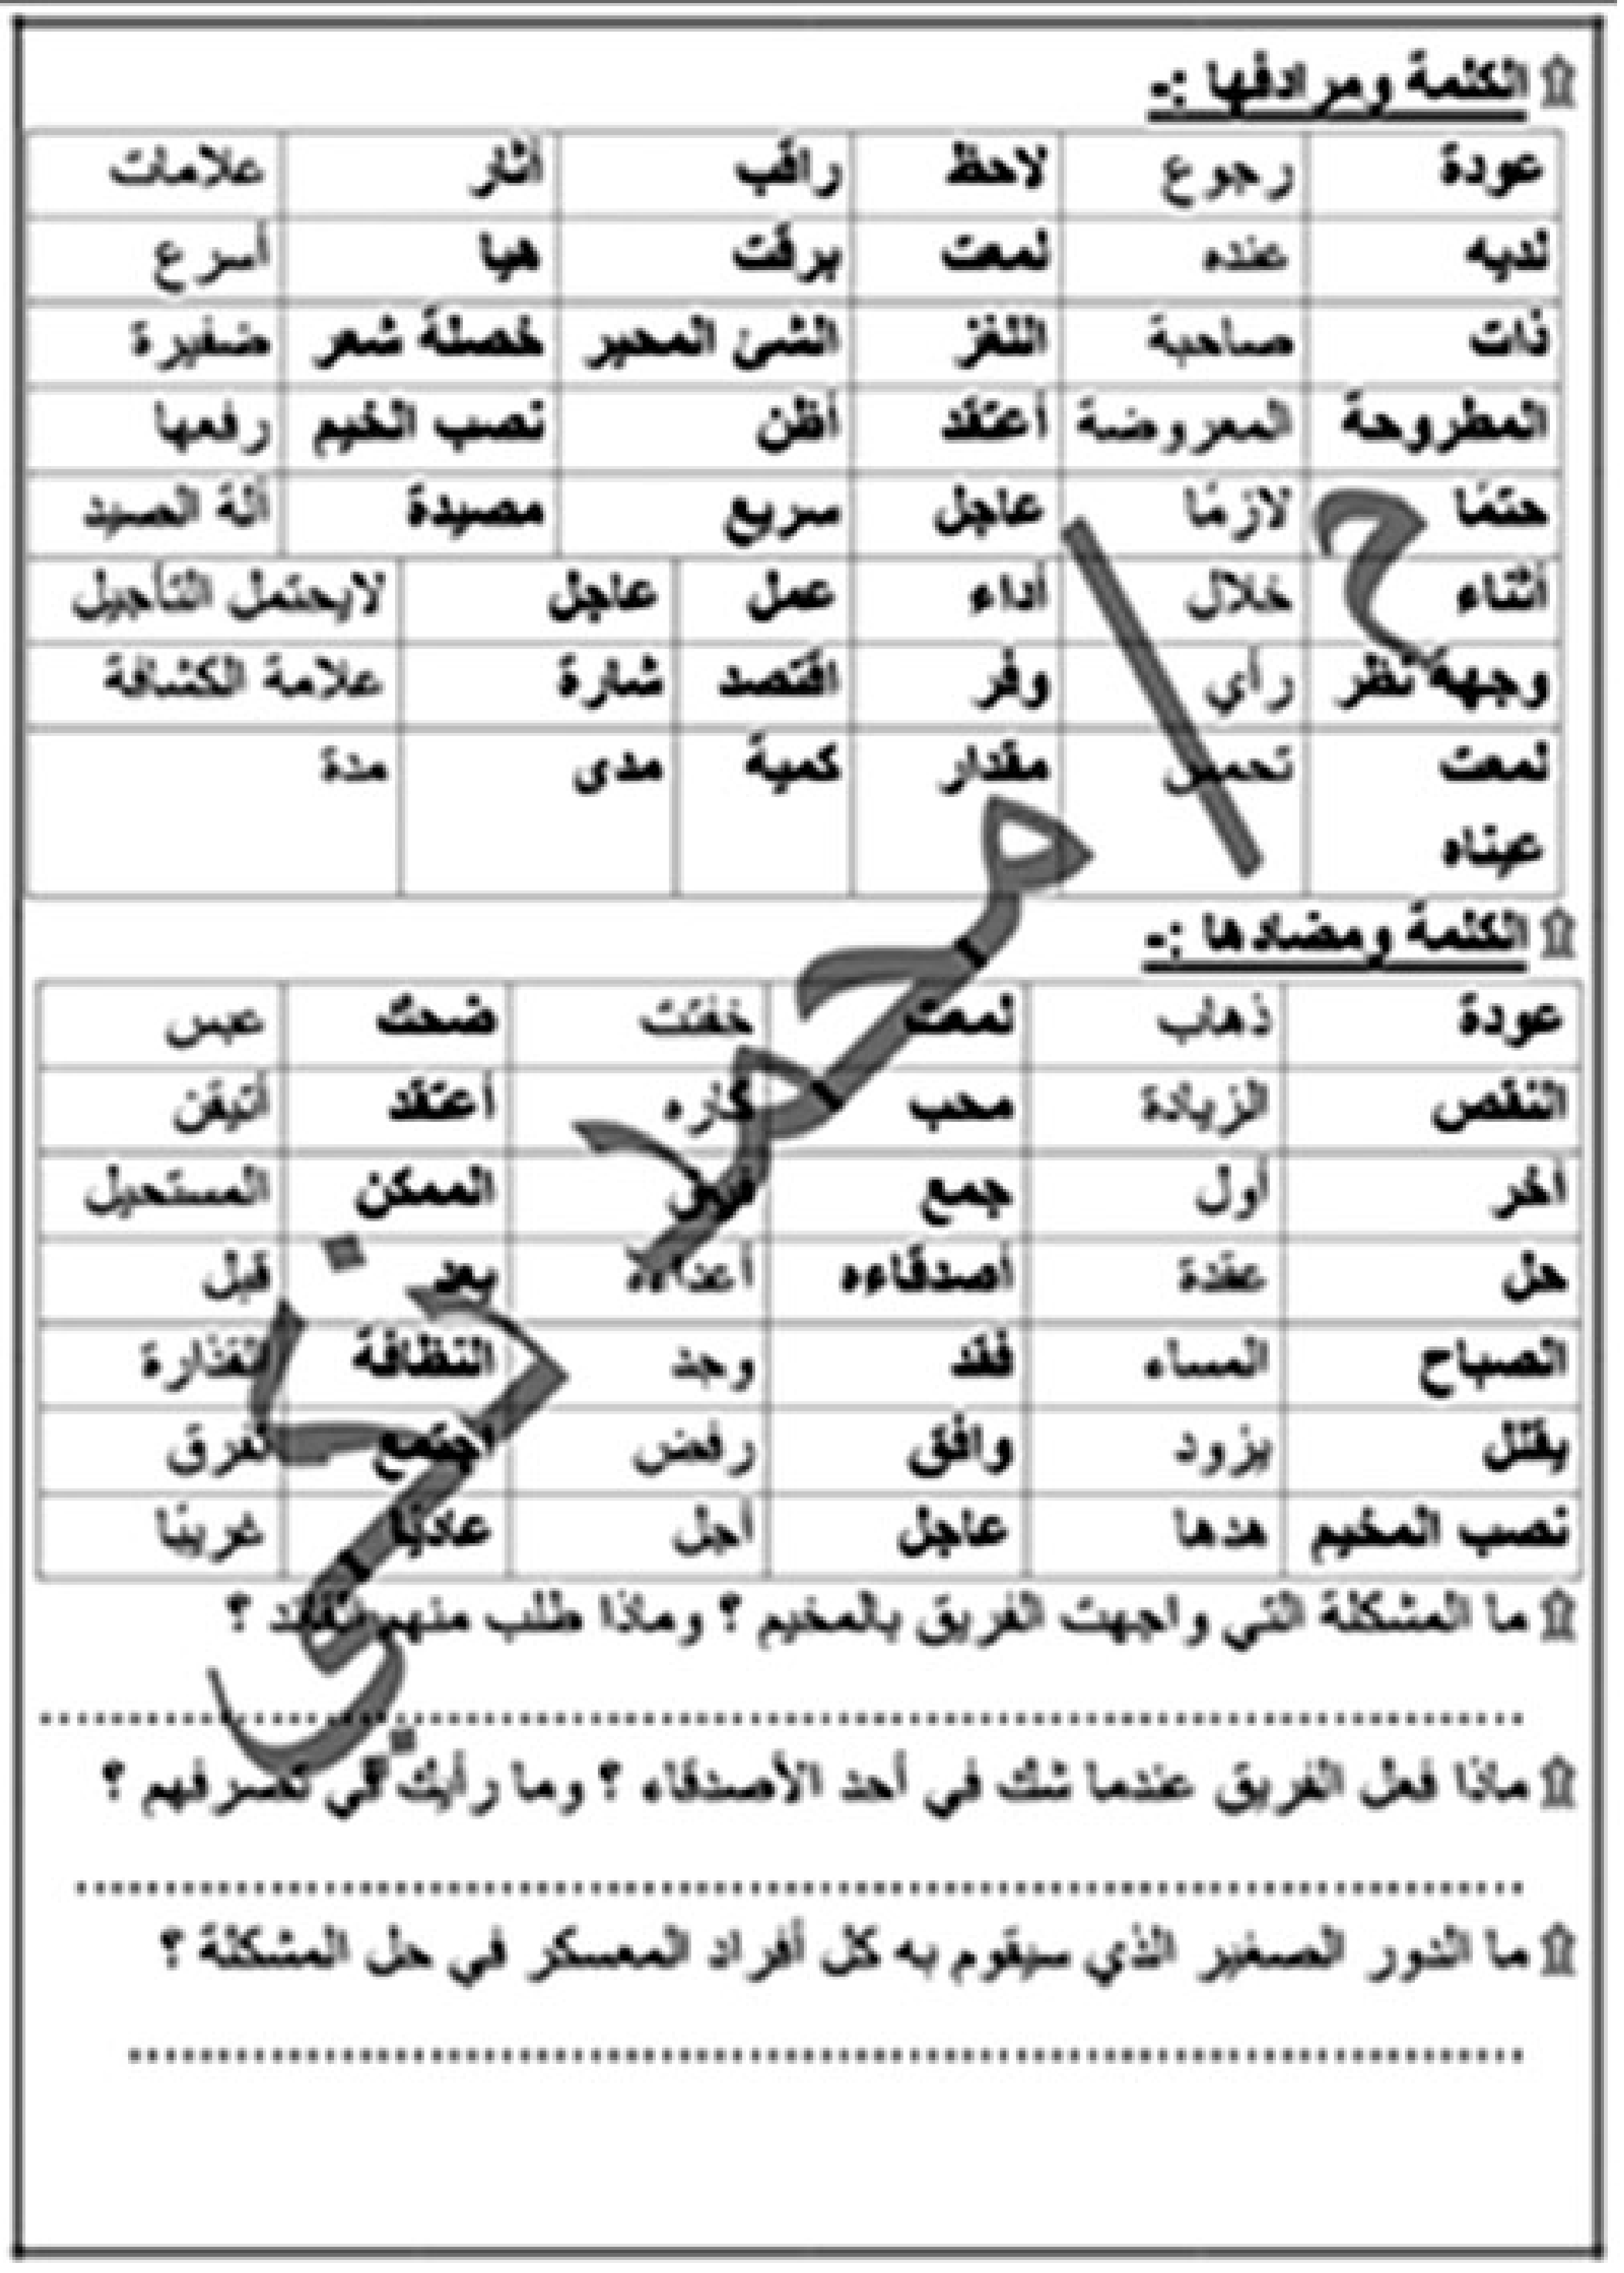 الكلمة ومرادفها :-
عودة رجوع لاحظ راقب أثار علامات
لديه عنده لمعت برقت هيا أسرع
ذات صاحبة اللغز الشئ المحير خصلة شعر ضفيرة
المطروحة المعروضة أعتقد أظن نصب الخيم رفعها
حتمًا لازمًا عاجل سريع مصيدة ألة الصيد
أثناء خلال أداء عمل عاجل لايحتمل التأجيل
وجهة نظر رأي وفر اقتصد شارة علامة الكشافة
لمعت تحمس مقدار كمية مدى مدة
عيناه
الكلمة ومضادها :-
عودة ذهاب لمعت خفتت ضحك عبس
النقص الزيادة محب كاره أعتقد أتيقن
أخر أول جمع فرق الممكن المستحيل
حل عقدة أصدقاءه أعداءه بعد قبل
الصباح المساء فقد وجد النظافة القذارة
يقلل يزود وافق رفض اجتمع تفرق
نصب المخيم هدها عاجل أجل عاديًا غريبًا
ما المشكلة التي واجهت الفريق بالمخيم ؟ وماذا طلب منهم القائد ؟
ماذا فعل الفريق عندما شك في أحد الأصدقاء ؟ وما رأيك في تصرفهم ؟
ما الدور الصغير الذي سيقوم به كل أفراد المعسكر في حل المشكلة ؟